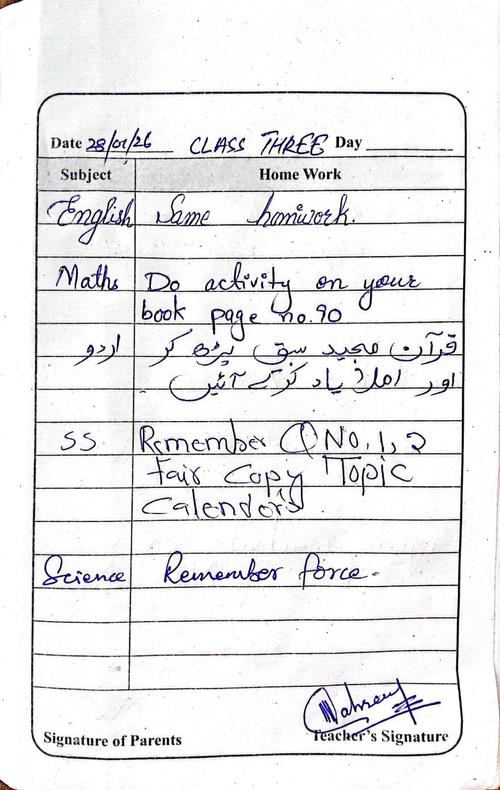 Date 28/01/26 CLASS THREE Day
Subject Home Work
English Same homiwork.
Maths Do activity on your
book page no.90
اردو قرآن مجید سبق پڑھ کر
اور املا یاد کرکے آئیں۔
SS Remember Q No. 1, 2
Fair Copy Topic
Calendors
Science Remember force.
Signature of Parents Teacher's Signature